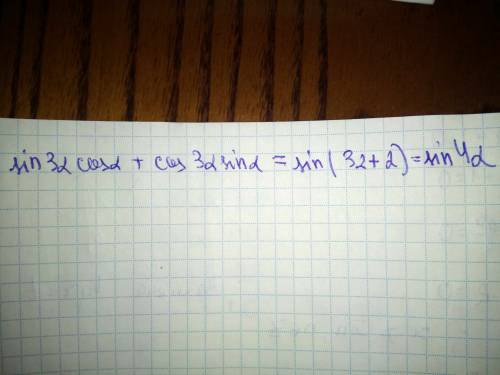 sin3α cosα + cos 3α sinα = sin(3α+α) = sin4α